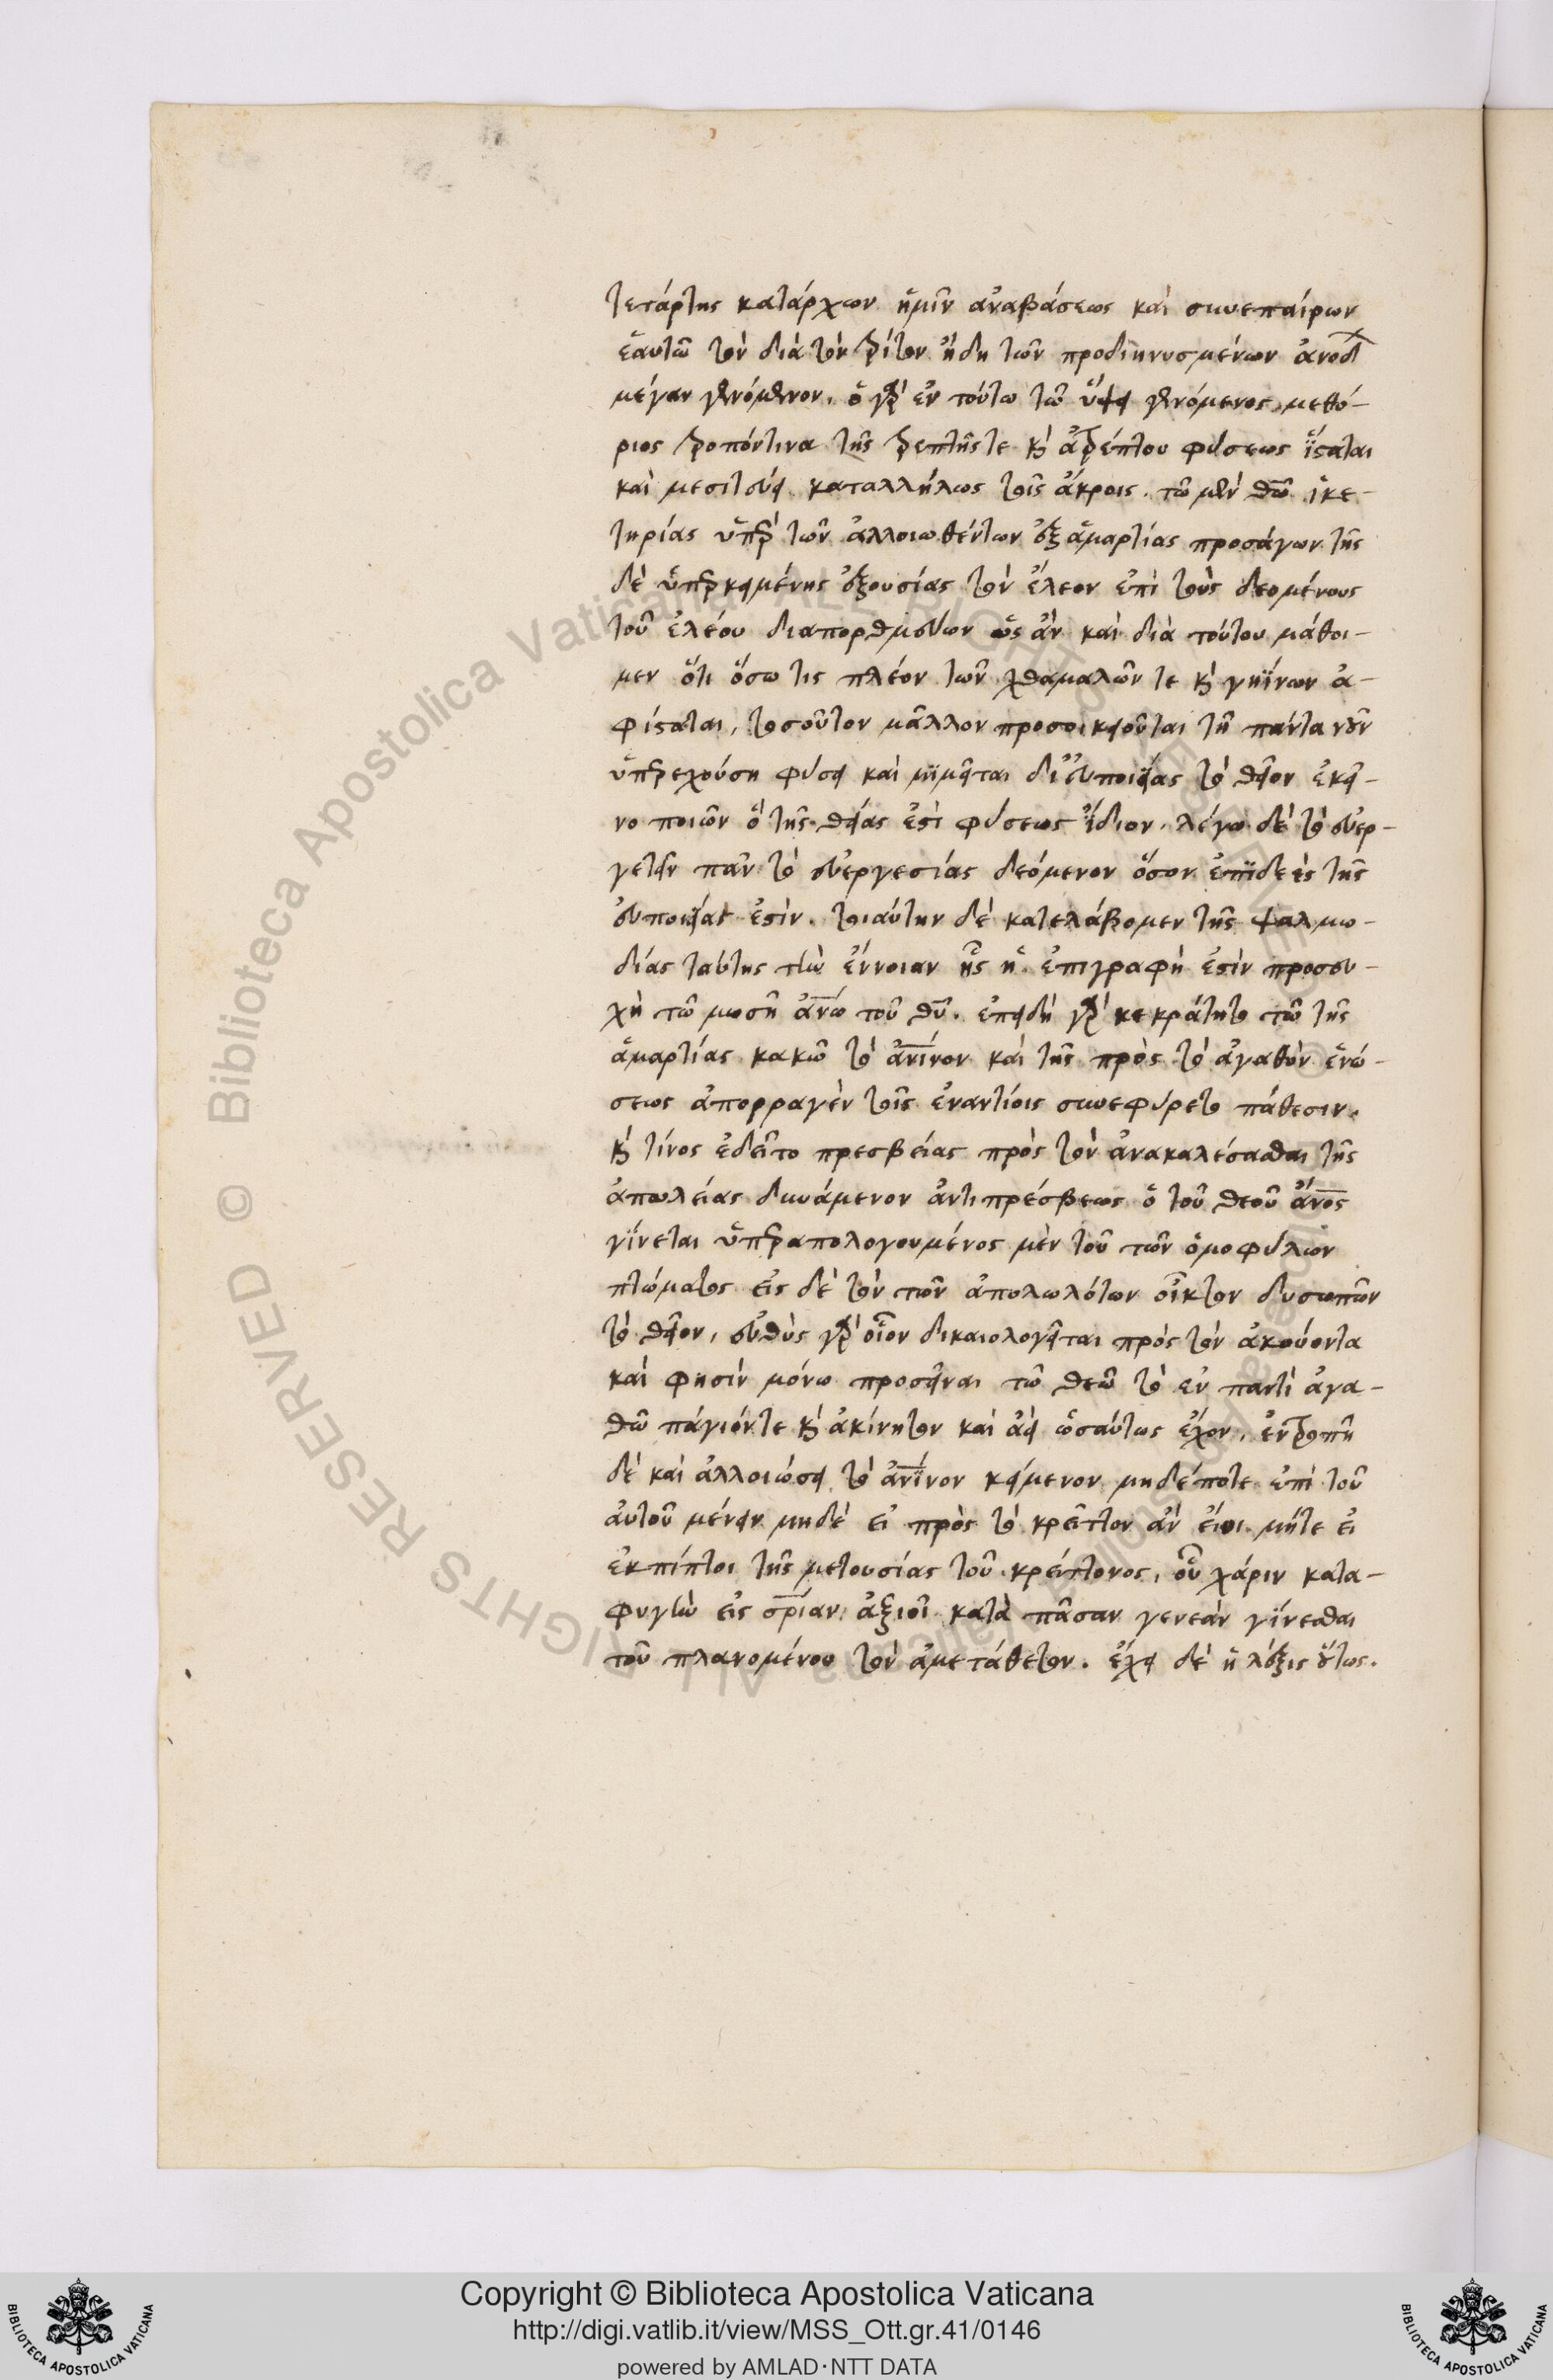 τετάρτης κατάρχων ἡμῖν ἀναβάσεως καὶ συνεπαίρων
ἑαυτῶ τὸν διὰ τὸν τρίτον ἤδη τῶν προδιηνυσμένων ἀνόδων
μέγαν γενόμενον. ὁ γὰρ ἐν τούτω τῶ ὕψει γενόμενος, μεθό-
ριος τρόπόν τινα τῆς τρεπτῆς τε κ ἀτρέπτου φύσεως ἵσταται
καὶ μεσιτεύει καταλλήλως τοῖς ἄκροις. τῶ μὲν θῶ ἱκε-
τηρίας ὑπὲρ τῶν ἀλλοιωθέντων ἐξ ἁμαρτίας προσάγων τῆς
δὲ ὑπερκειμένης ἐξουσίας τὸν ἔλεον ἐπὶ τοὺς δεομένους
τοῦ ἐλέου διαπορθμεύων ὡς ἂν καὶ διὰ τούτου μάθοι-
μεν ὅτι ὅσω τις πλέον τῶν χθαμαλῶν τε κ γηΐνων ἀ-
φίσταται, τοσοῦτον μᾶλλον προσοικειοῦται τῆ πάντα νοῦν
ὑπερεχούση φύσει καὶ μιμεῖται δι' εὐποιΐας τὸ θεῖον ἐκεῖ-
νο ποιῶν ὃ τῆς θείας ἐστὶ φύσεως ἴδιον. λέγω δὲ τὸ εὐερ-
γετεῖν πᾶν τὸ εὐεργεσίας δεόμενον ὅσον ἐπιδεὲς τῆς
εὐποιΐας ἐστίν. τοιαύτην δὲ κατελάβομεν τῆς ψαλμω-
δίας ταύτης τὴν ἔννοιαν ἧς ἡ ἐπιγραφή ἐστὶν προσευ-
χὴ τῶ μωσῆ ἀνω τοῦ θυ. ἐπειδὴ γὰρ κεκράτητο τῶ τῆς
ἁμαρτίας κακῶ τὸ ἀνινον καὶ τῆς πρὸς τὸ ἀγαθὸν ἑνώ-
σεως ἀπορραγὲν τοῖς ἐναντίοις συνεφύρετο πάθεσιν.
κ τίνος ἐδεῖτο πρεσβείας πρὸς τὸν ἀνακαλέσασθαι τῆς
ἀπωλείας δυνάμενον ἀντιπρέσβεως ὁ τοῦ θεοῦ ἄνος
γίνεται ὑπεραπολογουμένος μὲν τοῦ τῶν ὁμοφύλων
πτώματος εἰς δὲ τὸν τῶν ἀπολωλότων οἶκτον δυσωπῶν
τὸ θεῖον, εὐθὺς γὰρ οἷον δικαιολογεῖται πρὸς τὸν ἀκούοντα
καὶ φησὶν μόνω προσεῖναι τῶ θεῶ τὸ ἐν παντὶ ἀγα-
θῶ πάγιόν τε κ ἀκίνητον καὶ ἀεὶ ὡσαύτως ἔχον, ἐν τροπῆ
δὲ καὶ ἀλλοιώσει τὸ ἀνινον κείμενον μηδέποτε ἐπὶ τοῦ
αὐτοῦ μένειν μηδὲ εἰ πρὸς τὸ κρεῖττον ἂν εἴοι μήτε εἰ
ἐκπίπτοι τῆς μετουσίας τοῦ κρείττονος, οὗ χάριν κατα-
φυγὴν εἰς σριαν ἀξιοῖ κατὰ πᾶσαν γενεὰν γίνεσθαι
τοῦ πλανομένου τὸν ἀμετάθετον. ἔχει δὲ ἡ λέξις οὕτως.
Copyright © Biblioteca Apostolica Vaticana
http://digi.vatlib.it/view/MSS_Ott.gr.41/0146
powered by AMLAD·NTT DATA